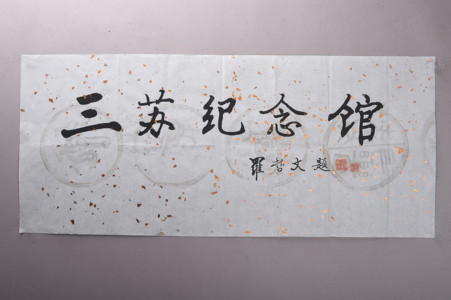 三苏纪念馆
罗哲文题